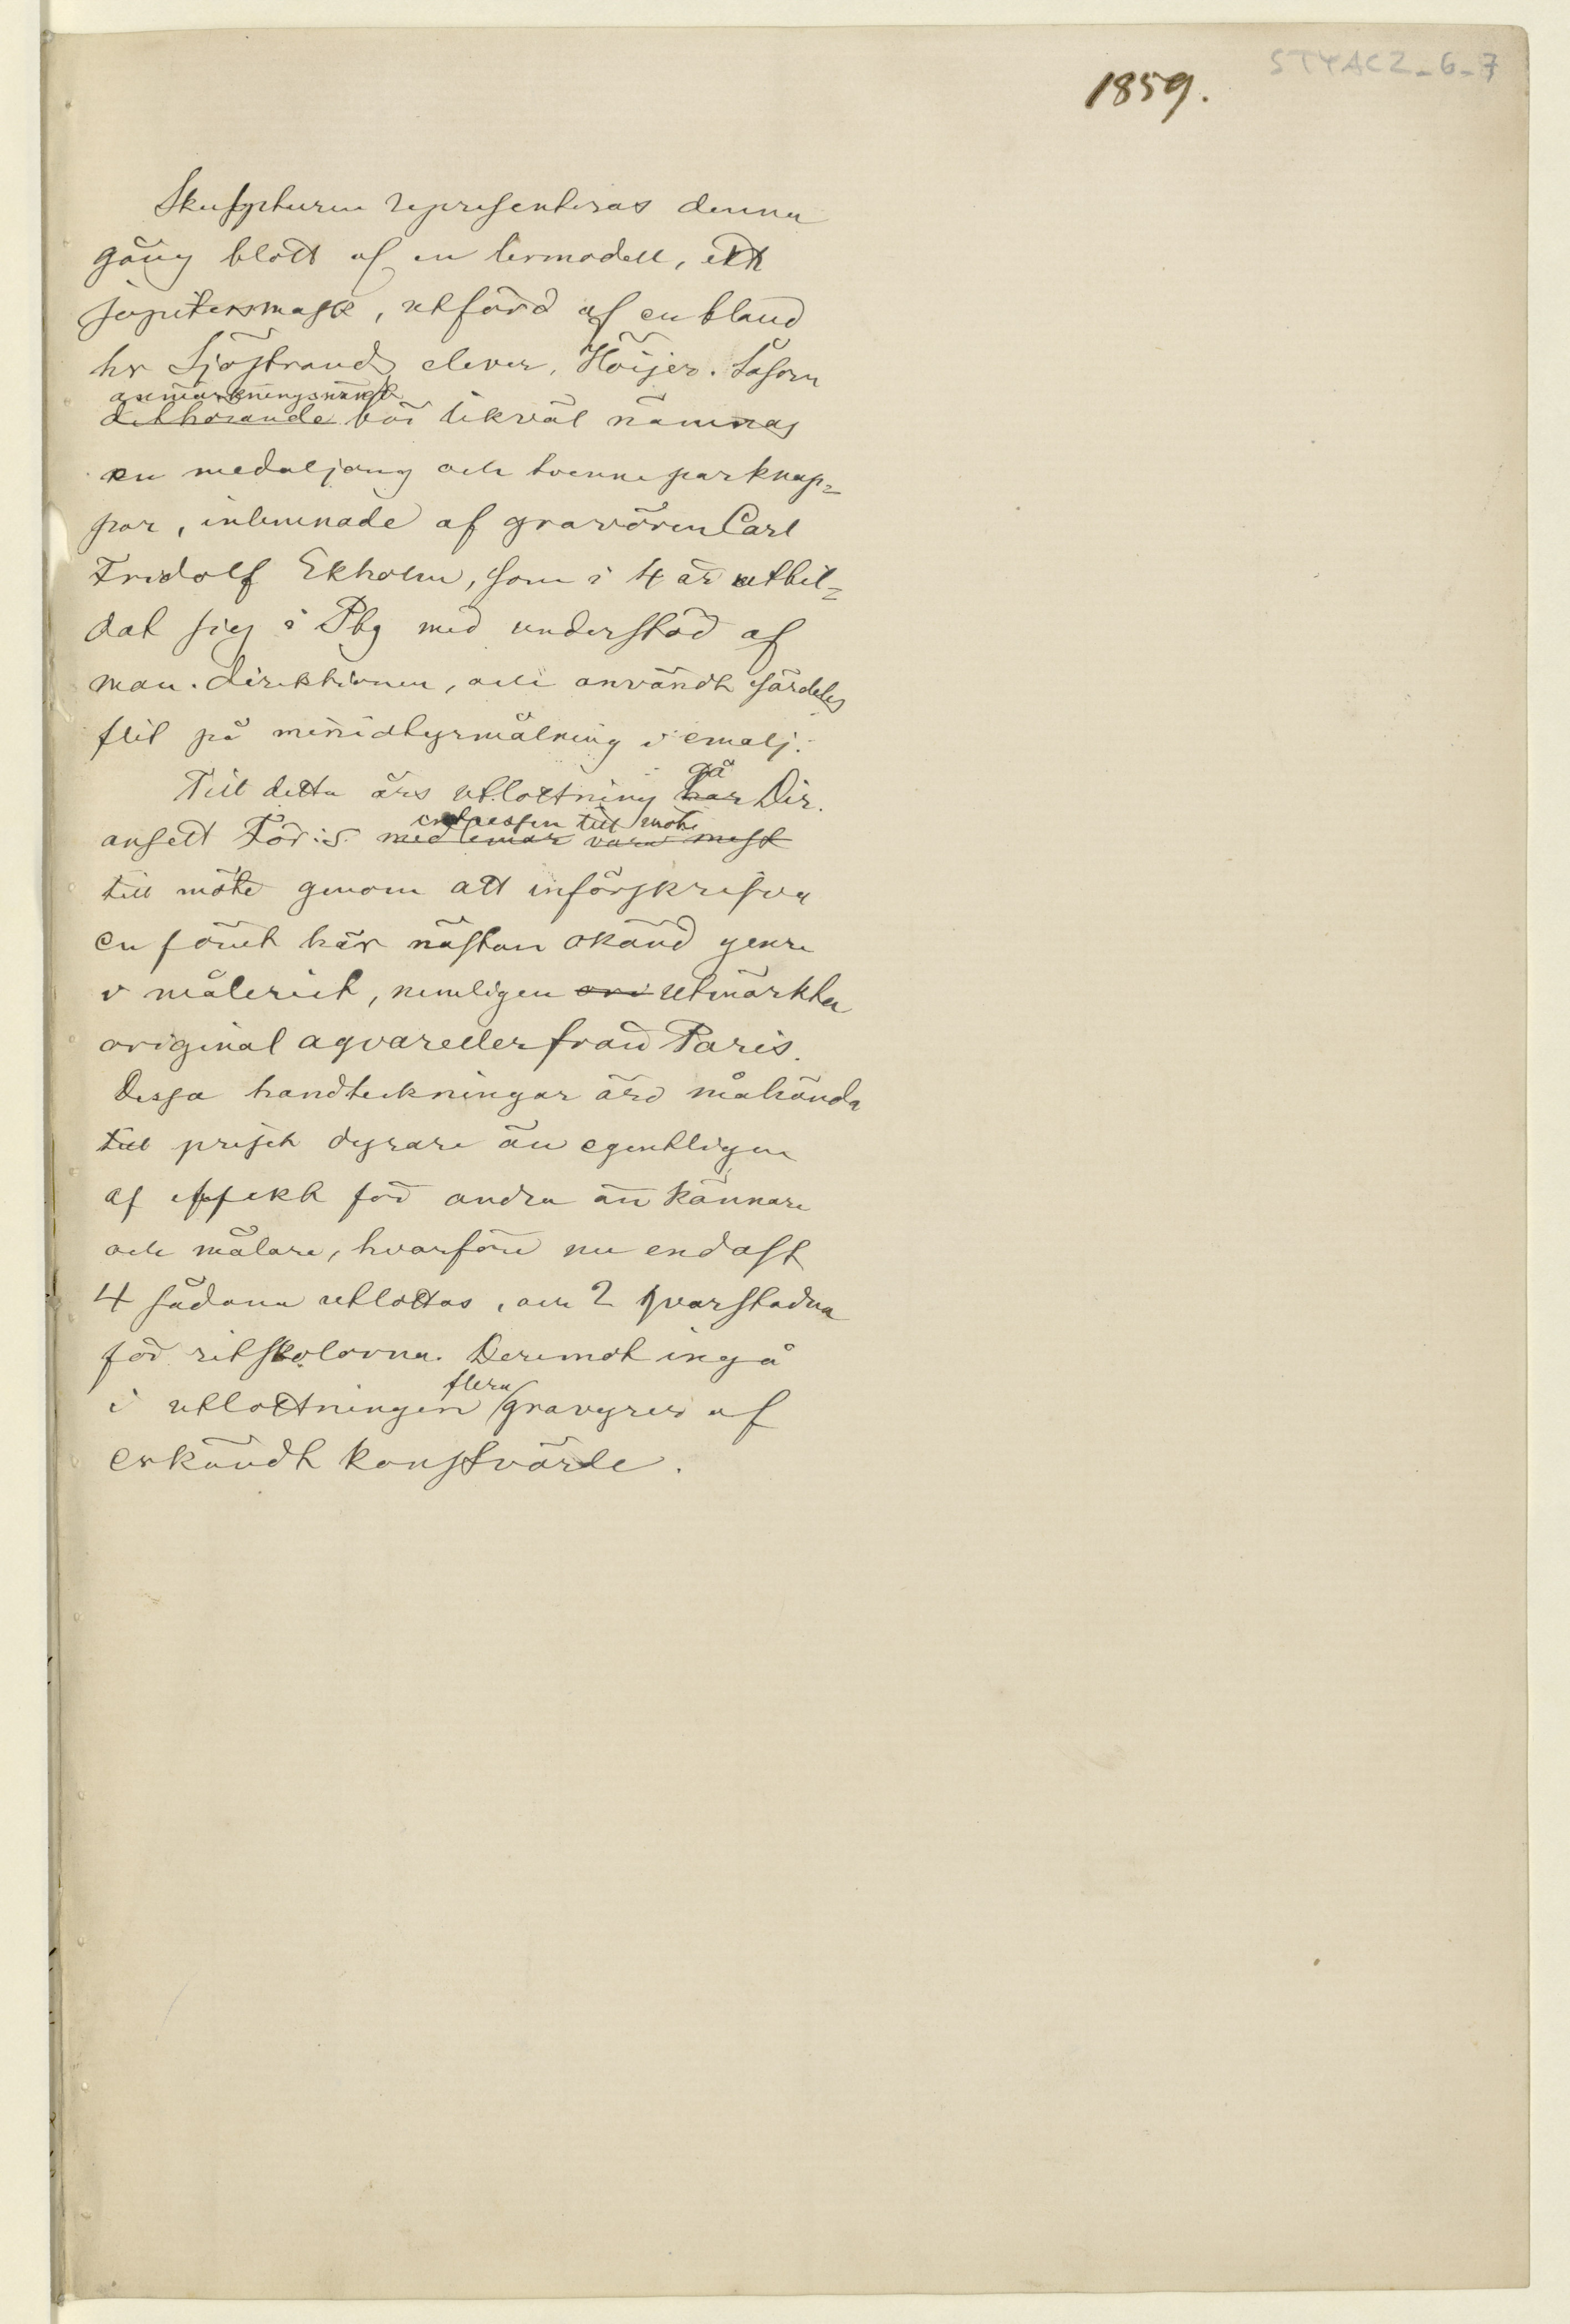 STYAC2_6_7
1859.
Skulpturen representeras denna
gång blott af en lermodell, ett
jupitersmask, utförd af en bland
hr Sjöstrands elever, Höijer. Såsom
anmärkningsvärdt
dithörande bör likväl nämnas
en medaljong och tvenne par knap=
par, inlemnade af gravören Carl
Fridolf Ekholm, som i 4 år utbil=
dat sig i Pbg med understöd af
man. direktionen, och användt särdeles
flit på miniatyrmålning i emalj.
gå
Till detta års utlottning har Dir.
intressen till möte
ansett För:s medlemar vara mest
till möte genom att införskrifva
en förut här nästan okänd genre
i måleriet, nemligen ori utmärkta
original aqvareller från Paris.
Dessa handteckningar äro måhända
till priset dyrare än egentligen
af effekt för andra än kännare
och målare, hvarföre nu endast
4 sådana utlottas, och 2 qvarstadna
för ritskolorna. Deremot ingå
flera
i utlottningen gravyrer af
erkändt konstvärde.